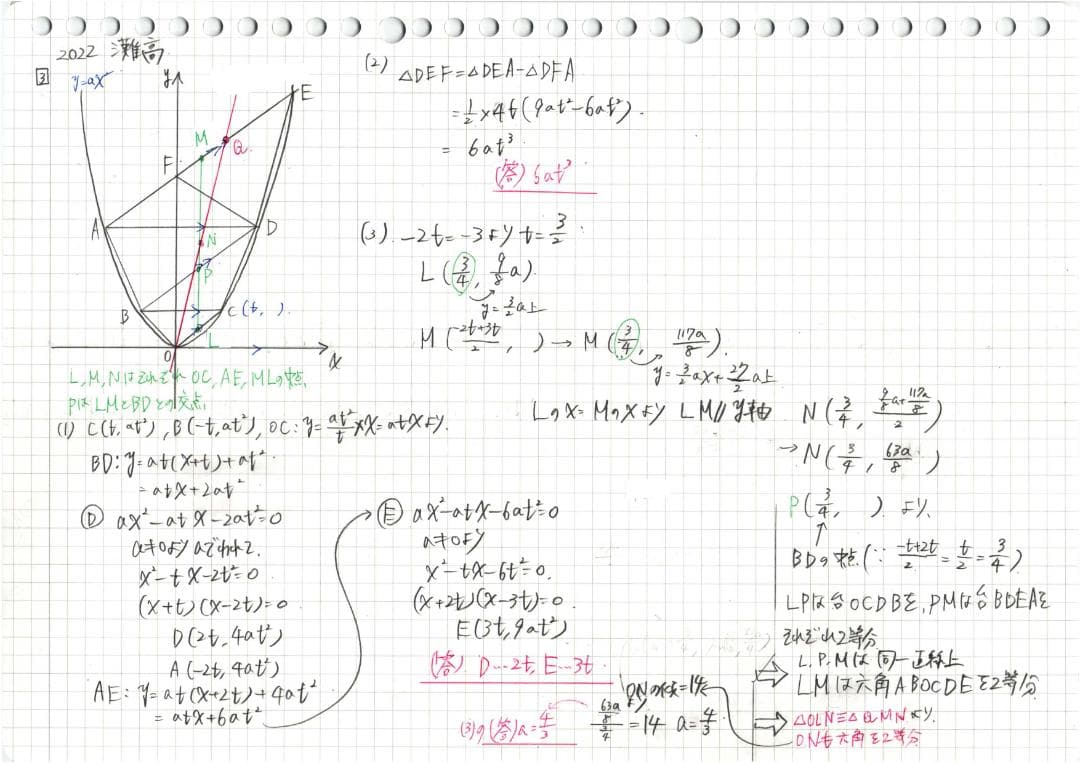 2022 灘高
3
y=ax²
y
E
M
Q
F
A
D
N
P
B
C(t, ).
L
O
x
L,M,NはそれぞれOC,AE,MLの中点
PはLMとBDとの交点
(1) C(t,at²), B(-t,at²), OC: y=at²/t×x=atxより.
BD: y=at(x+t)+at²
=atx+2at²
Ⓓ ax²-atx-2at²=0
a≠0よりaでわって.
x²-tx-2t²=0
(x+t)(x-2t)=0
D(2t,4at²)
A(-2t,4at²)
AE: y=at(x+2t)+4at²
=atx+6at²
Ⓔ ax²-atx-6at²=0
a≠0より
x²-tx-6t²=0.
(x+2t)(x-3t)=0.
E(3t,9at²)
(答) D…2t, E…3t
(2)
△DEF=△DEA-△DFA
=1/2×4t(9at²-6at²).
= 6at³
(答) 6at³
(3). -2t=-3よりt=3/2.
L(3/4, 9/8a).
y=3/2a上
M(2t+3t/2, )→M(3/4, 117a/8).
y=3/2ax+27/2a上
Lのx=Mのxより LM//y軸
N(3/4, 9/8a+117a/8/2)
→N(3/4, 63a/8)
P(3/4, ). より.
BDの中点(∵ -t+2t/2=t/2=3/4)
LPは台OCDBを,PMは台BDEAを
それぞれ2等分
⇒ L.P.Mは同一直線上
LMは六角ABOCDEを2等分
⇒ △OLN≡△QMNより.
ONも六角を2等分
ONの傾=14
より
63a/8/3/4=14 a=4/3
(3)の(答)a=4/3